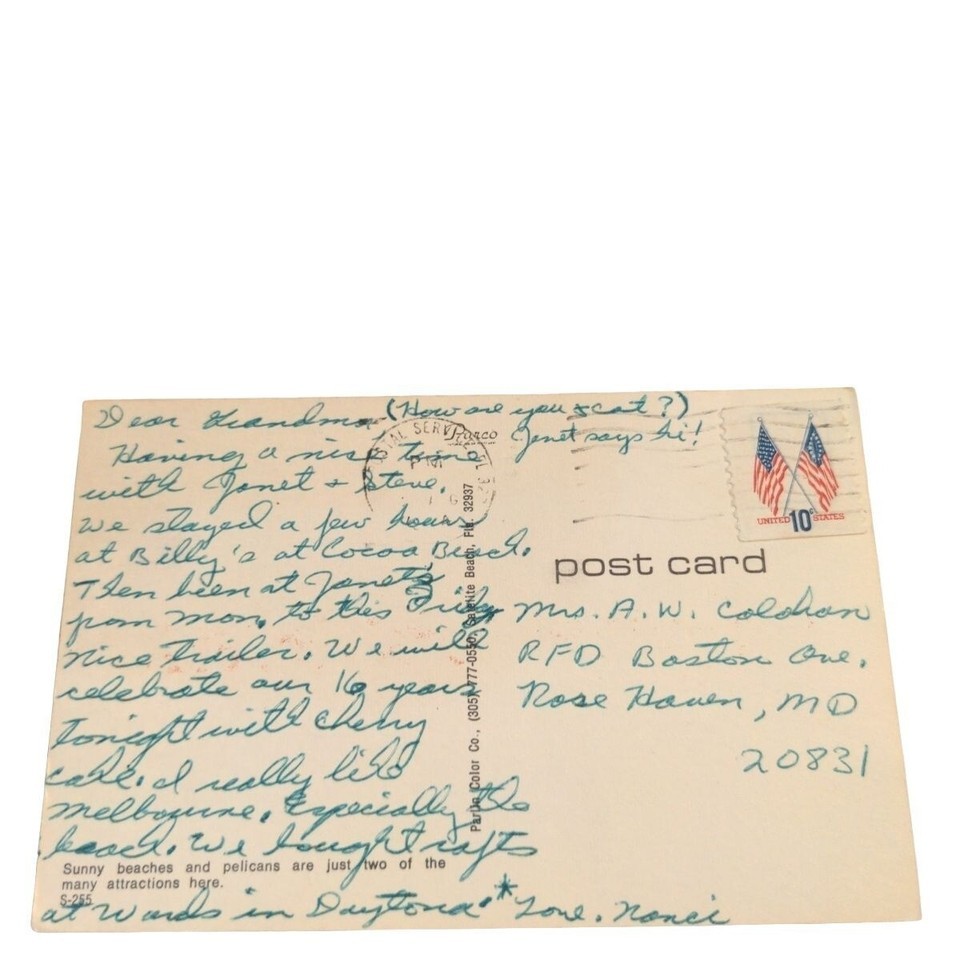 Dear Grandma (How are you & cat?)
Janet says hi!
Having a nice time
with Janet & Steve.
We stayed a few hours
at Billy's at Cocoa Beach.
Then been at Janet's
from Mon. to this Friday
nice trailer. We will
celebrate our 16 years
tonight with cherry
cake. I really like
Melbourne. Especially the
beach. We bought rafts
at Wards in Daytona. * Love, Nanci
Sunny beaches and pelicans are just two of the
many attractions here.
S-255
Parco
POSTAL SERVICE
PM
Color Co., (305) 777-0550, Satellite Beach, Fla. 32937
UNITED 10c STATES
post card
Mrs. A. W. Colohan
RFD Boston Ave.
Rose Haven, MD
20831